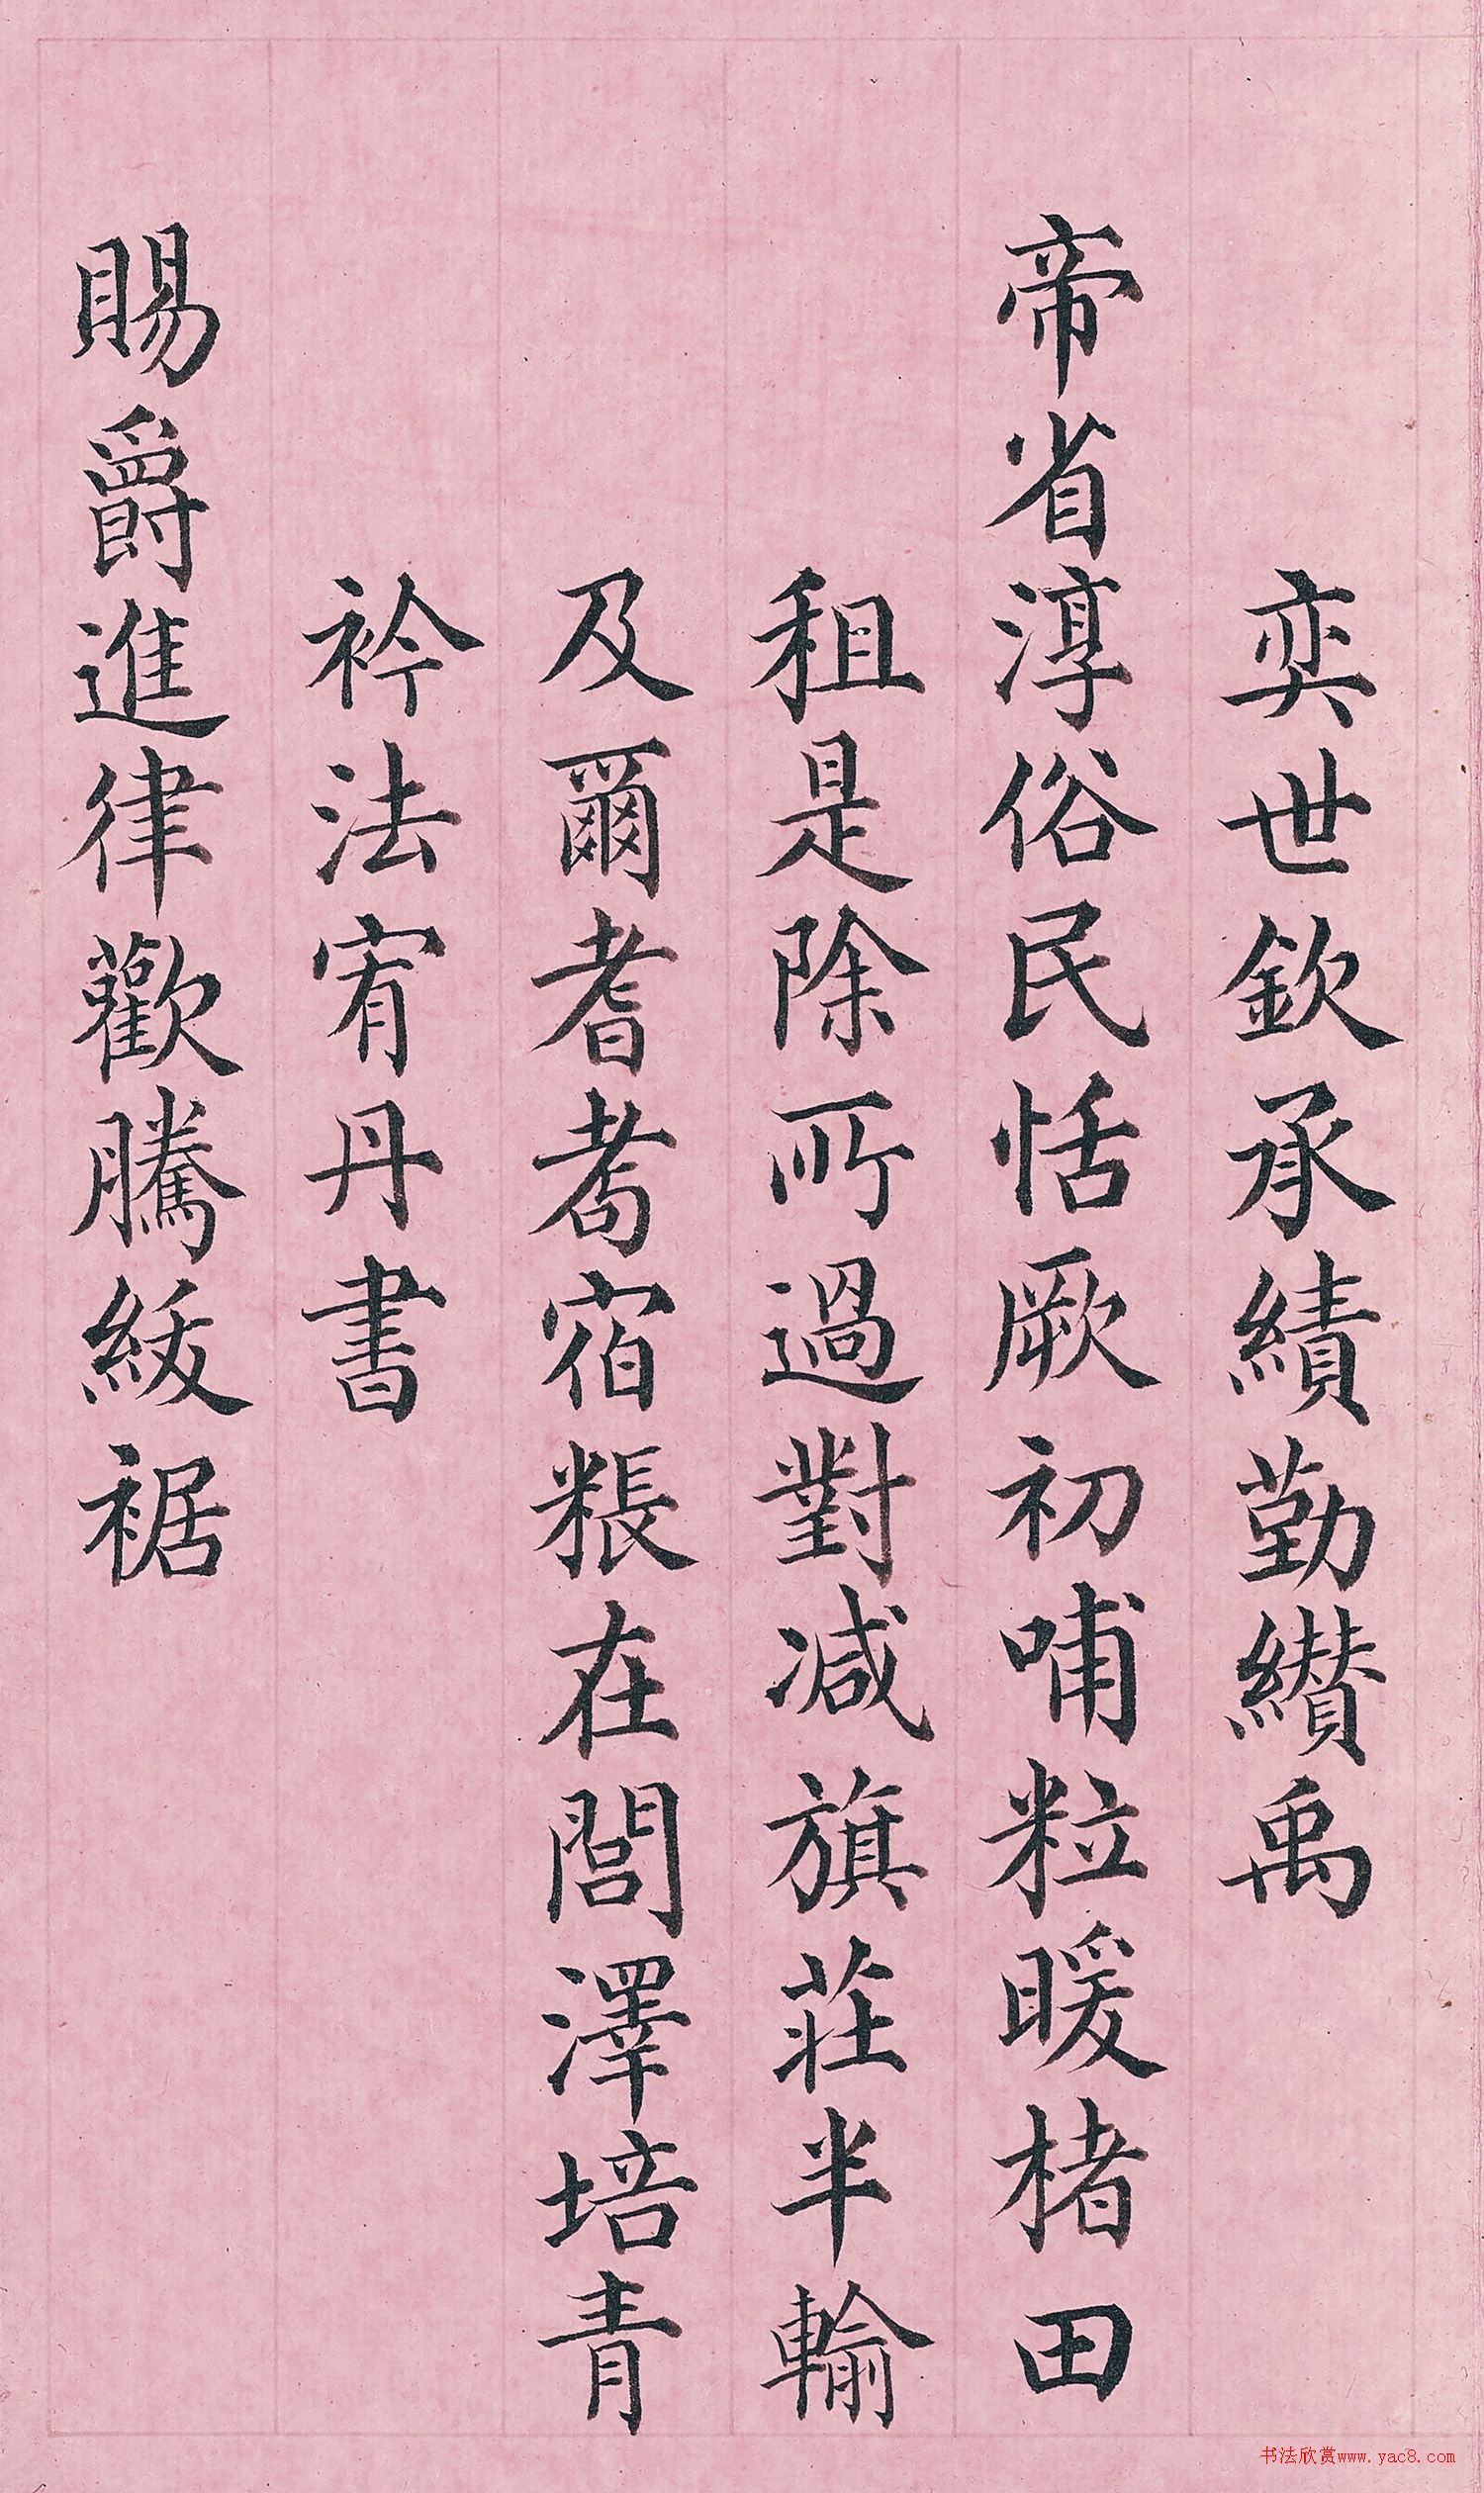 奕世欽承績勤纘禹
帝省淳俗民恬厥初哺粒暖楮田
租是除所過對減旗莊半輸
及爾耆耇宿粻在閭澤培青
衿法宥丹書
賜爵進律歡騰綏裾
书法欣赏www.yac8.com